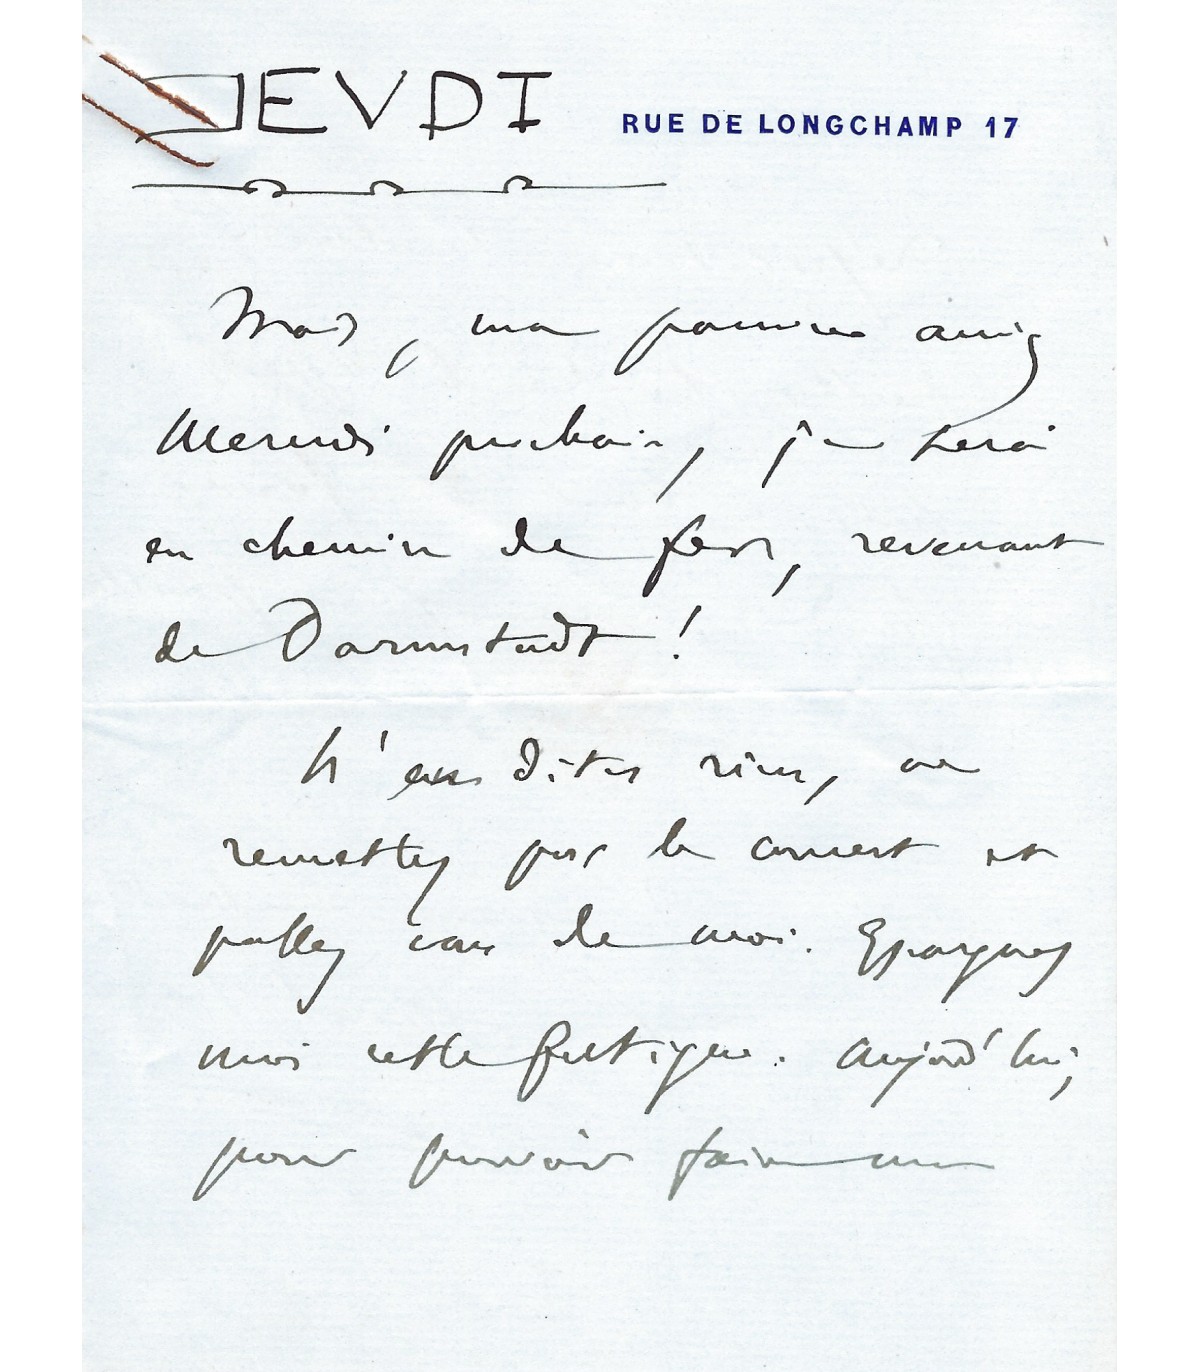 JEUDI RUE DE LONGCHAMP 17
Mais, ma pauvre amie
Mercredi prochain, je serai
en chemin de fer, revenant
de Darmstadt !
N'en dites rien, ne
remettez pas le concert et
passez vous de moi. Epargnez
moi cette fatigue. Aujourd'hui,
pour pouvoir faire un